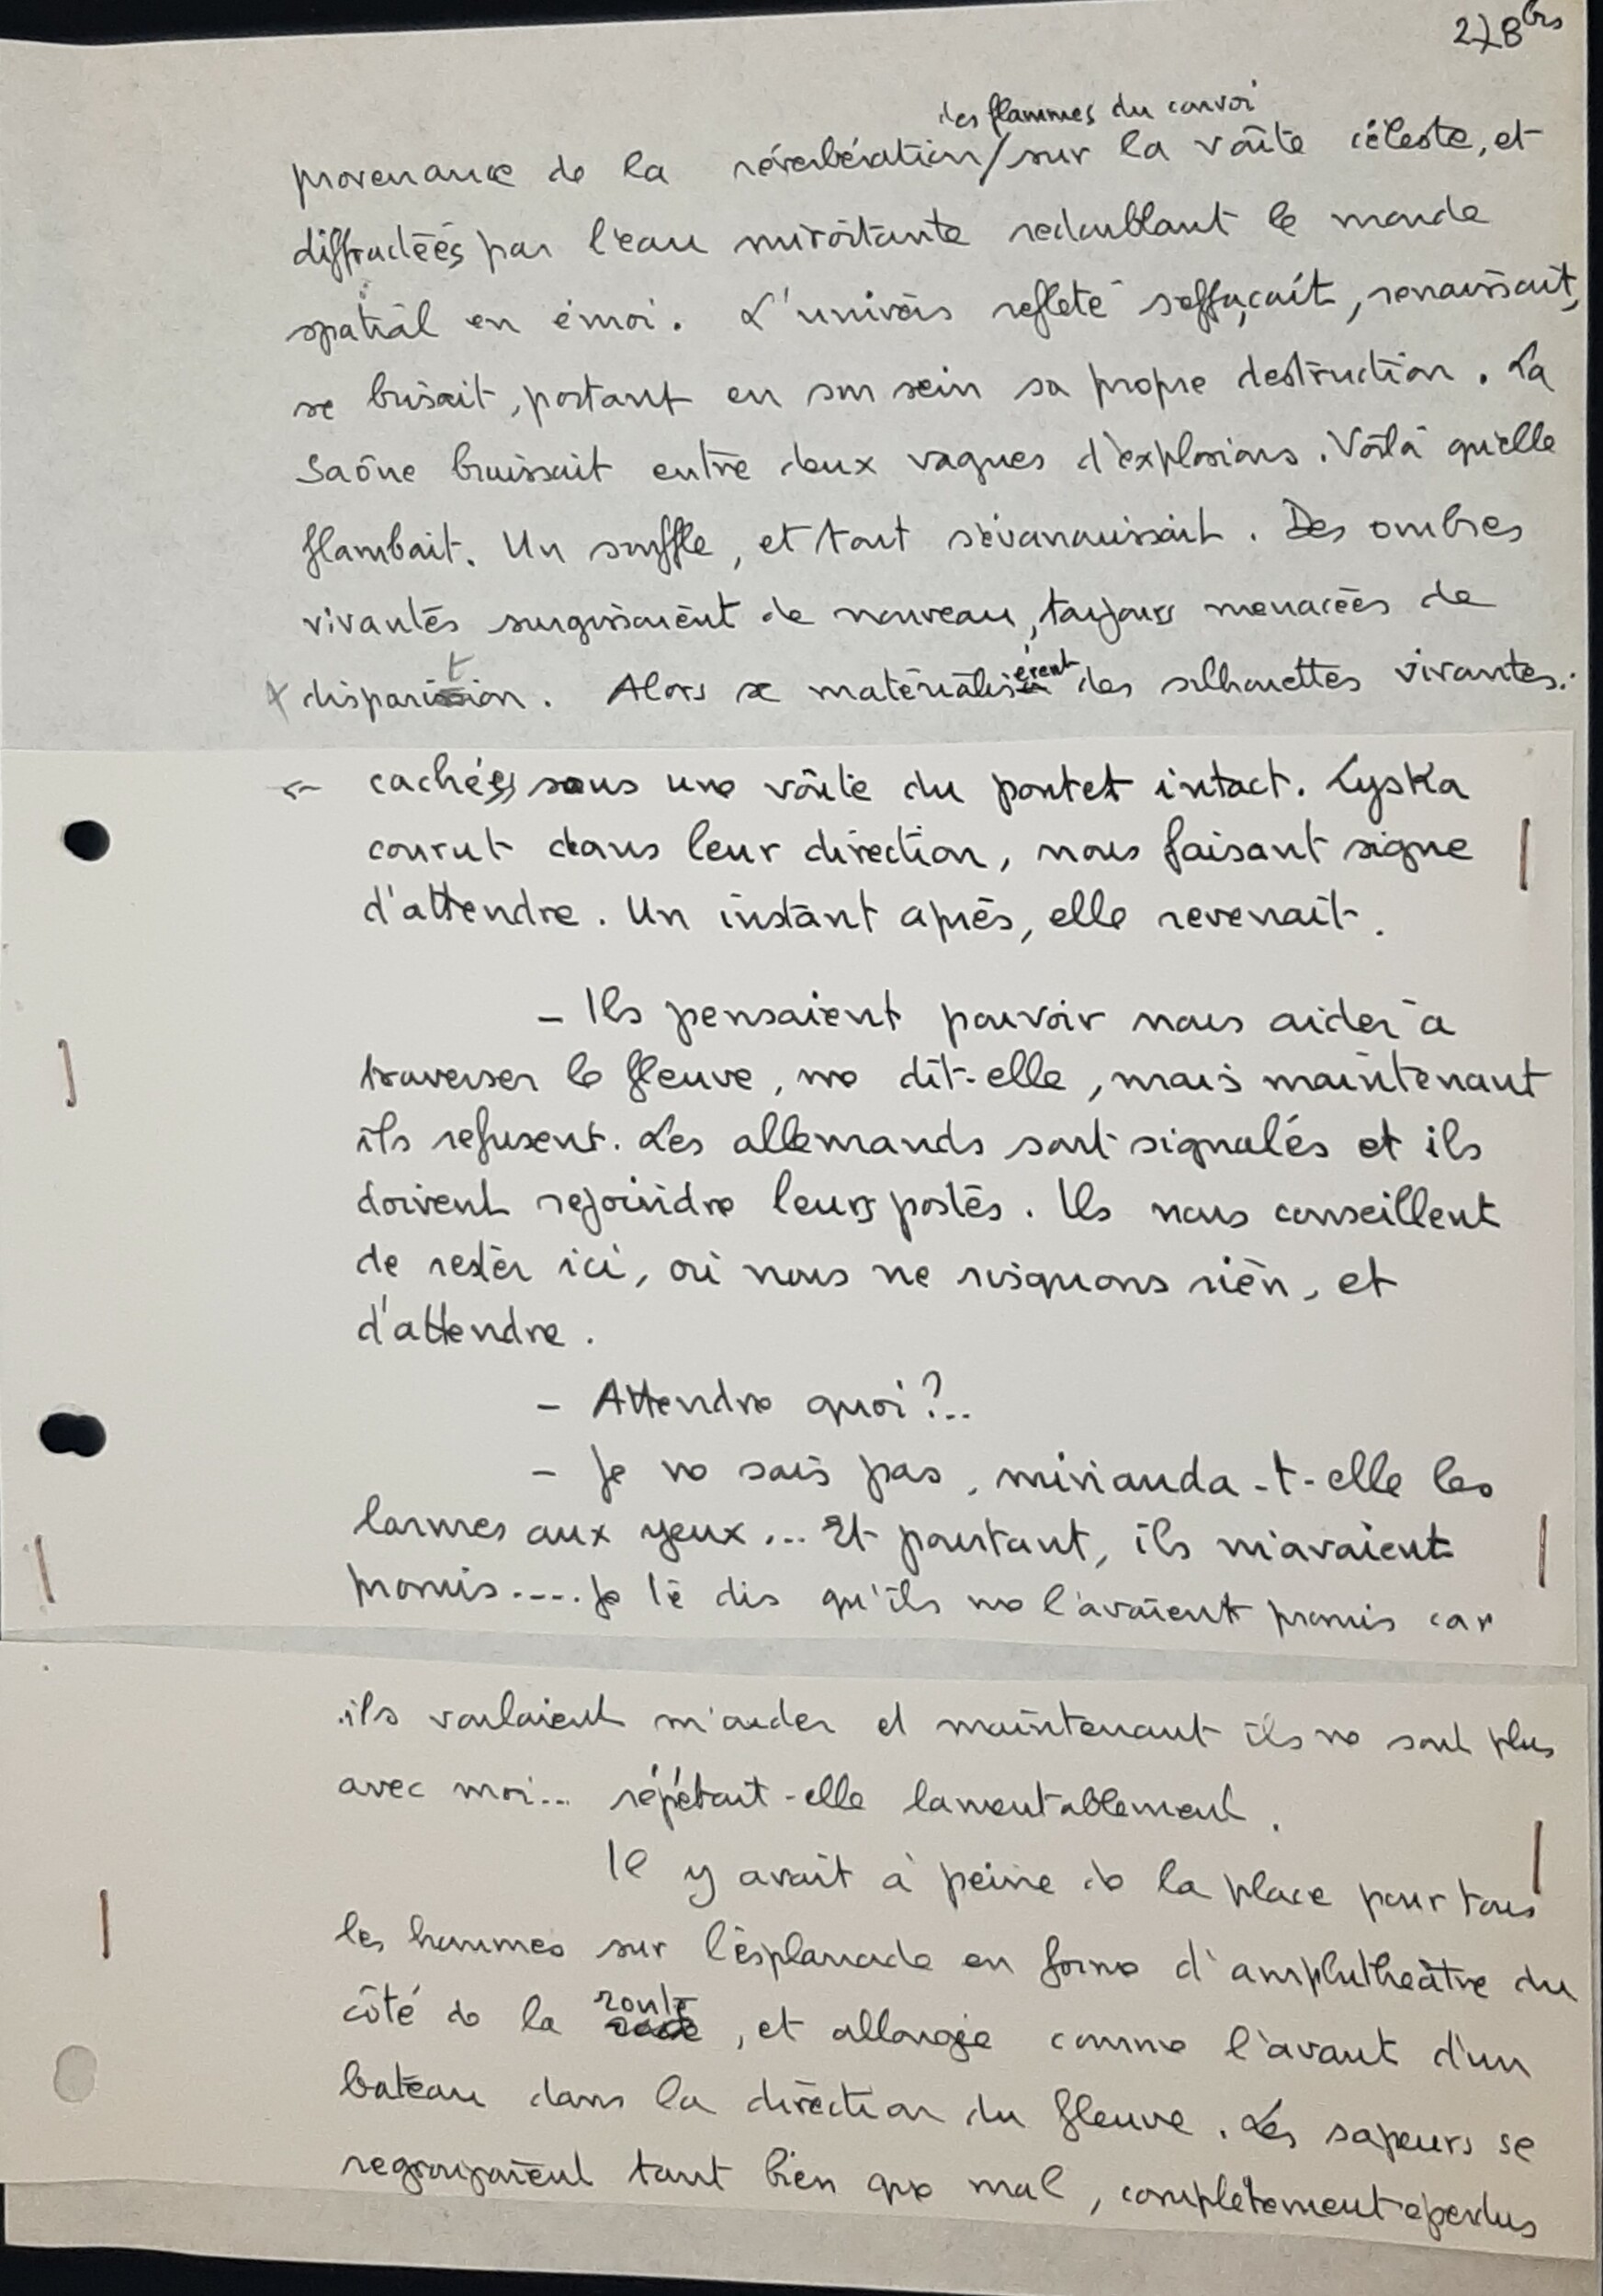 278 bis
des flammes du convoi
provenance de la réverbération/sur la voûte céleste, et
diffractées par l'eau miroitante redoublant le monde
spatial en émoi. L'univers refleté s'effaçait, renaissait,
se brisait, portant en son sein sa propre destruction. La
Saône bruissait entre deux vagues d'explosions. Voilà qu'elle
flambait. Un souffle, et tout s'évanouissait. Des ombres
vivantes surgissaient de nouveau, toujours menacées de
disparition. Alors se matérialisèrent des silhouettes vivantes.
cachées sous une voûte du pontet intact. Lyska
courut dans leur direction, nous faisant signe
d'attendre. Un instant après, elle revenait.
– Ils pensaient pouvoir nous aider à
traverser le fleuve, me dit-elle, mais maintenant
ils refusent. Les allemands sont signalés et ils
doivent rejoindre leurs postes. Ils nous conseillent
de rester ici, où nous ne risquons rien, et
d'attendre.
– Attendre quoi?..
– Je ne sais pas, minauda-t-elle les
larmes aux yeux... Et pourtant, ils m'avaient
promis.... Je te dis qu'ils me l'avaient promis car
ils voulaient m'aider et maintenant ils ne sont plus
avec moi... répétait-elle lamentablement.
Il y avait à peine de la place pour tous
les hommes sur l'esplanade en forme d'amphithéâtre du
côté de la route, et allongée comme l'avant d'un
bateau dans la direction du fleuve. Les sapeurs se
regroupaient tant bien que mal, complètement éperdus